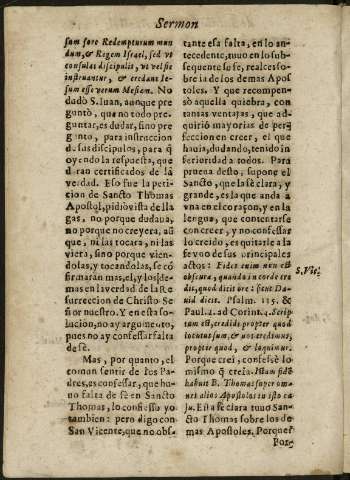 Sermon
sum fore Redempturum mun
dum, & Regem Israel, sed vt
consulat discipulis, vt vel sic
instruantur, & credant Ie-
sum esse verum Mesiam. No
dadò S. Iuan, aunque pre
guntò, que no todo pre
guntar, es dudar, sino pre
gunto, para instruccion
de sus discipulos, para q̃
oyendo la respuesta, que
dran certificados de la
verdad. Eso fue la peti-
cion de Sancto Thomas
Apostol, pidiò vista de lla
gas, no porque dudaua,
no porque no creyera, aũ
que, ni las tocara, ni las
viera, sino porque vien-
dolas, y tocandolas, se cõ
firmaràn mas, el, y los de-
mas en la verdad de la Re
surreccion de Christo Se
ñor nuestro. Y en esta so-
lucion, no ay argumento,
pues no ay confessar falta
de sè.
Mas, por quanto, el
comun sentir de los Pa
dres, es confessar, que hu-
uo falta de sè en Sancto
Thomas, lo confiesso yo
tambien: pero digo con
San Vicente, que no obs-
tante esa falta, en lo an-
tecedente, tuuo en lo sub-
sequente su fe, realces so-
bre la de los demas Apos
toles. Y que recompen-
sò aquella quiebra, con
tantas ventajas, que ad-
quiriò mayorias de per-
feccion en creer, el que
hauia, dudando, tenido in
ferioridad a todos. Para
prueua desto, supone el
Sancto, que la sè clara, y
grande, es la que anda a
vna en el coraçon, y en la
lengua, que contentarse
con creer, y no confessar
lo creido, es quitarle a la
fe vno de sus principales
actos: Fides enim non est
obscura, quando in corde cre
dit, quod dicit ore: sicut Da-
uid dicit. Psalm. 115. &
Paul. 2. ad Corint. 4. Scrip
tum est, credidi propter quod
locutus sum, & nos credimus,
propter quod, & loquimur.
Porque crei, confesse lo
mismo q̃ creia. Istam fidẽ
habuit B. Thomas super om-
nes alios Apostolos in isto ca
su. Esta sè clara tuuo San-
cto Thomas sobre los de
mas Apostoles. Porque?
Por-
S. Vic.